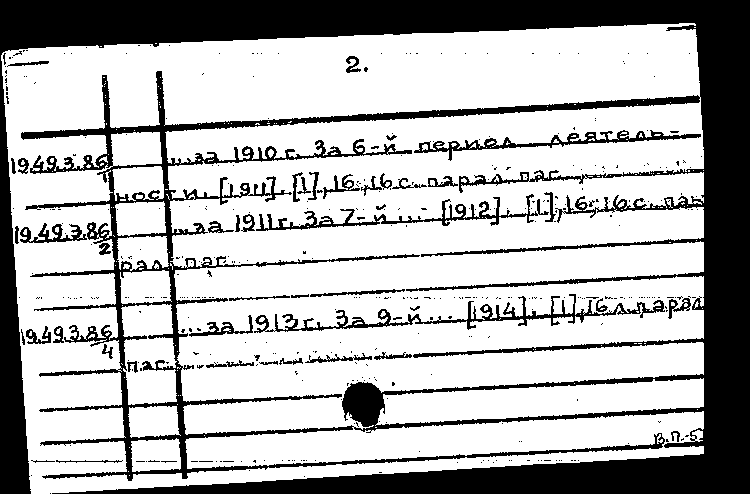 2.
19.49.3.86/1 ...за 1910 г. За 6-й период деятель-
ности. [1911]. [1], 16; 16 с. парал. паг.
19.49.3.86/2 ...за 1911 г. За 7-й... [1912]. [1], 16; 16 с. па-
рал. паг.
19.49.3.86/4 ...за 1913 г. За 9-й... [1914]. [1], 16 л. парал.
паг.
В.П.-5